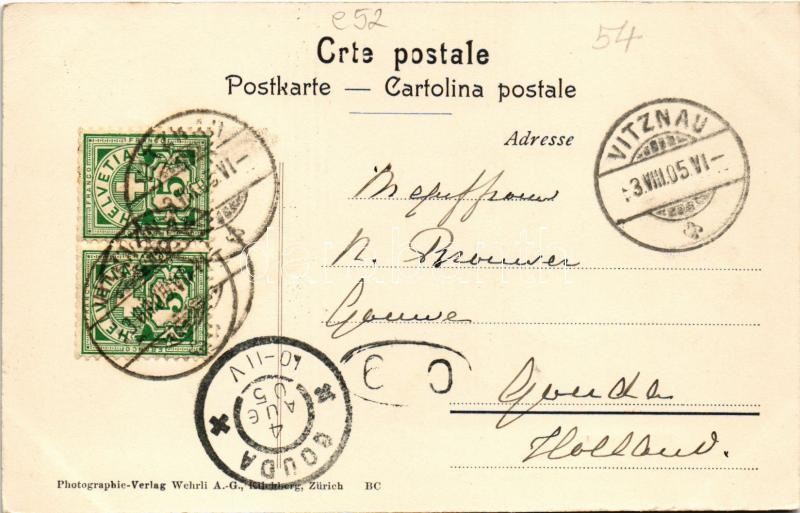 e52
54
Crte postale
Postkarte — Cartolina postale
Adresse
VITZNAU
-3.VIII.05.VI-
FRANCO
HELVETIA
5
HELVETIA
5
FRANCO
Mejuffrouw
N. Brouwer
Gouwe
Gouda
Holland.
GOUDA
4 AUG 05
10-11V
Photographie-Verlag Wehrli A.-G., Kilchberg, Zürich BC